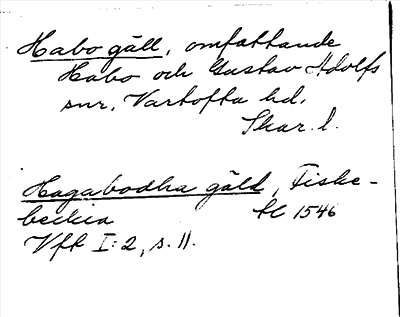 Habo gäll, omfattande
Habo och Gustav Adolfs
snr, Vartofta hd,
Skar. l.
Hagabodha gäld, Fiske-
beckia tC 1546
Vft I:2, s. 11.